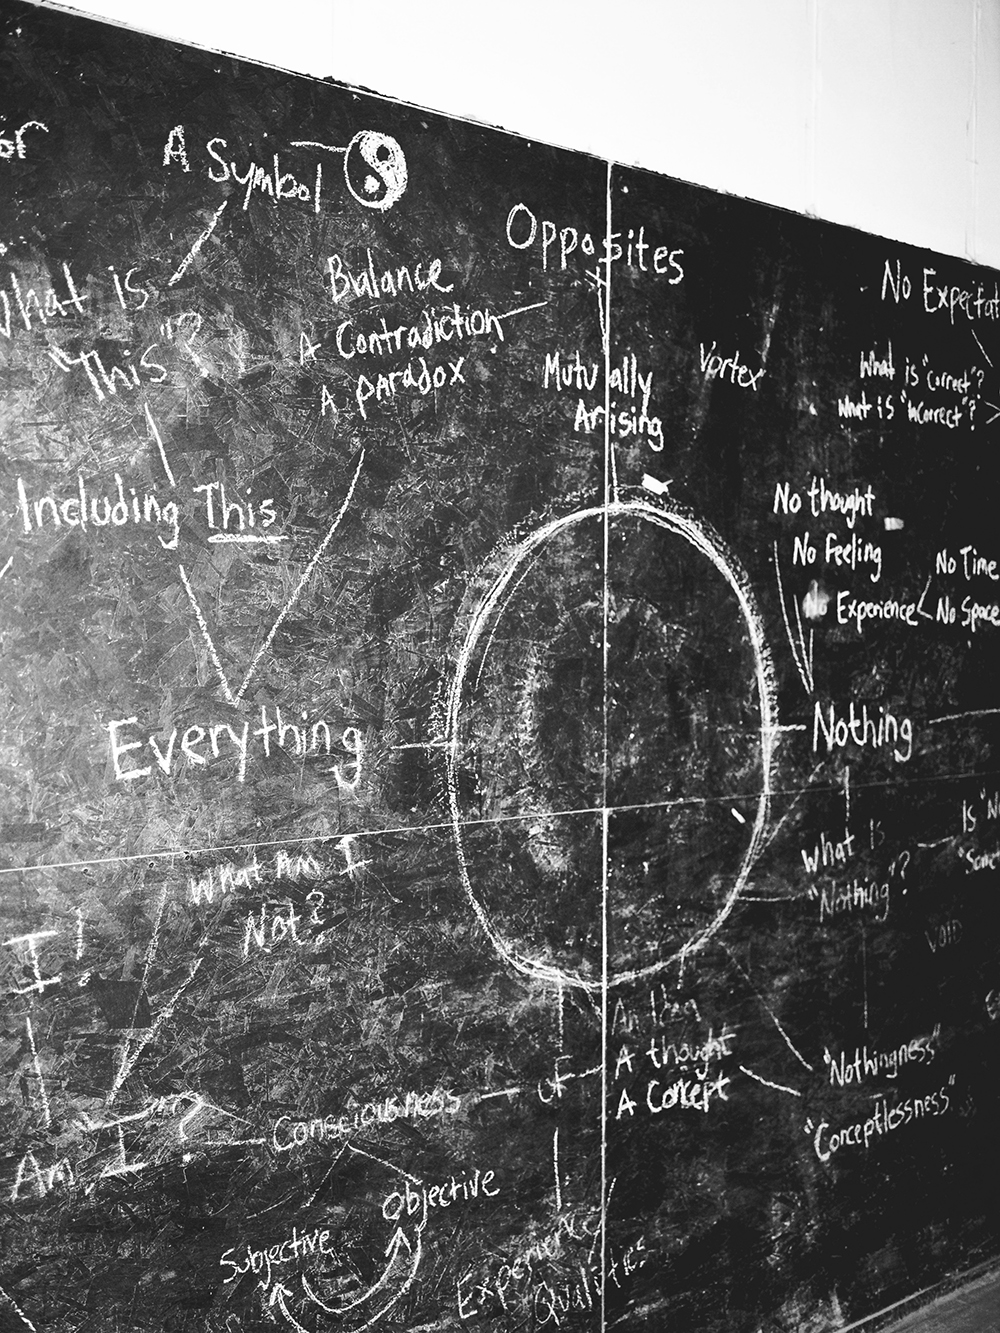 or
A Symbol
What is
"This"?
Including This
Balance
A Contradiction
A paradox
Opposites
Mutually
Arising
Vortex
No Expectat
What is "correct"?
What is "incorrect"?
No thought
No feeling
No Experience
No Time
No Space
Everything
Nothing
What Am I
Not?
What is
"Nothing"?
Is "N
"Some
Void
I!
Am I?
Consciousness
of
A thought
A Concept
"Nothingness"
"Conceptlessness"
Objective
Subjective
Experience
Qualities